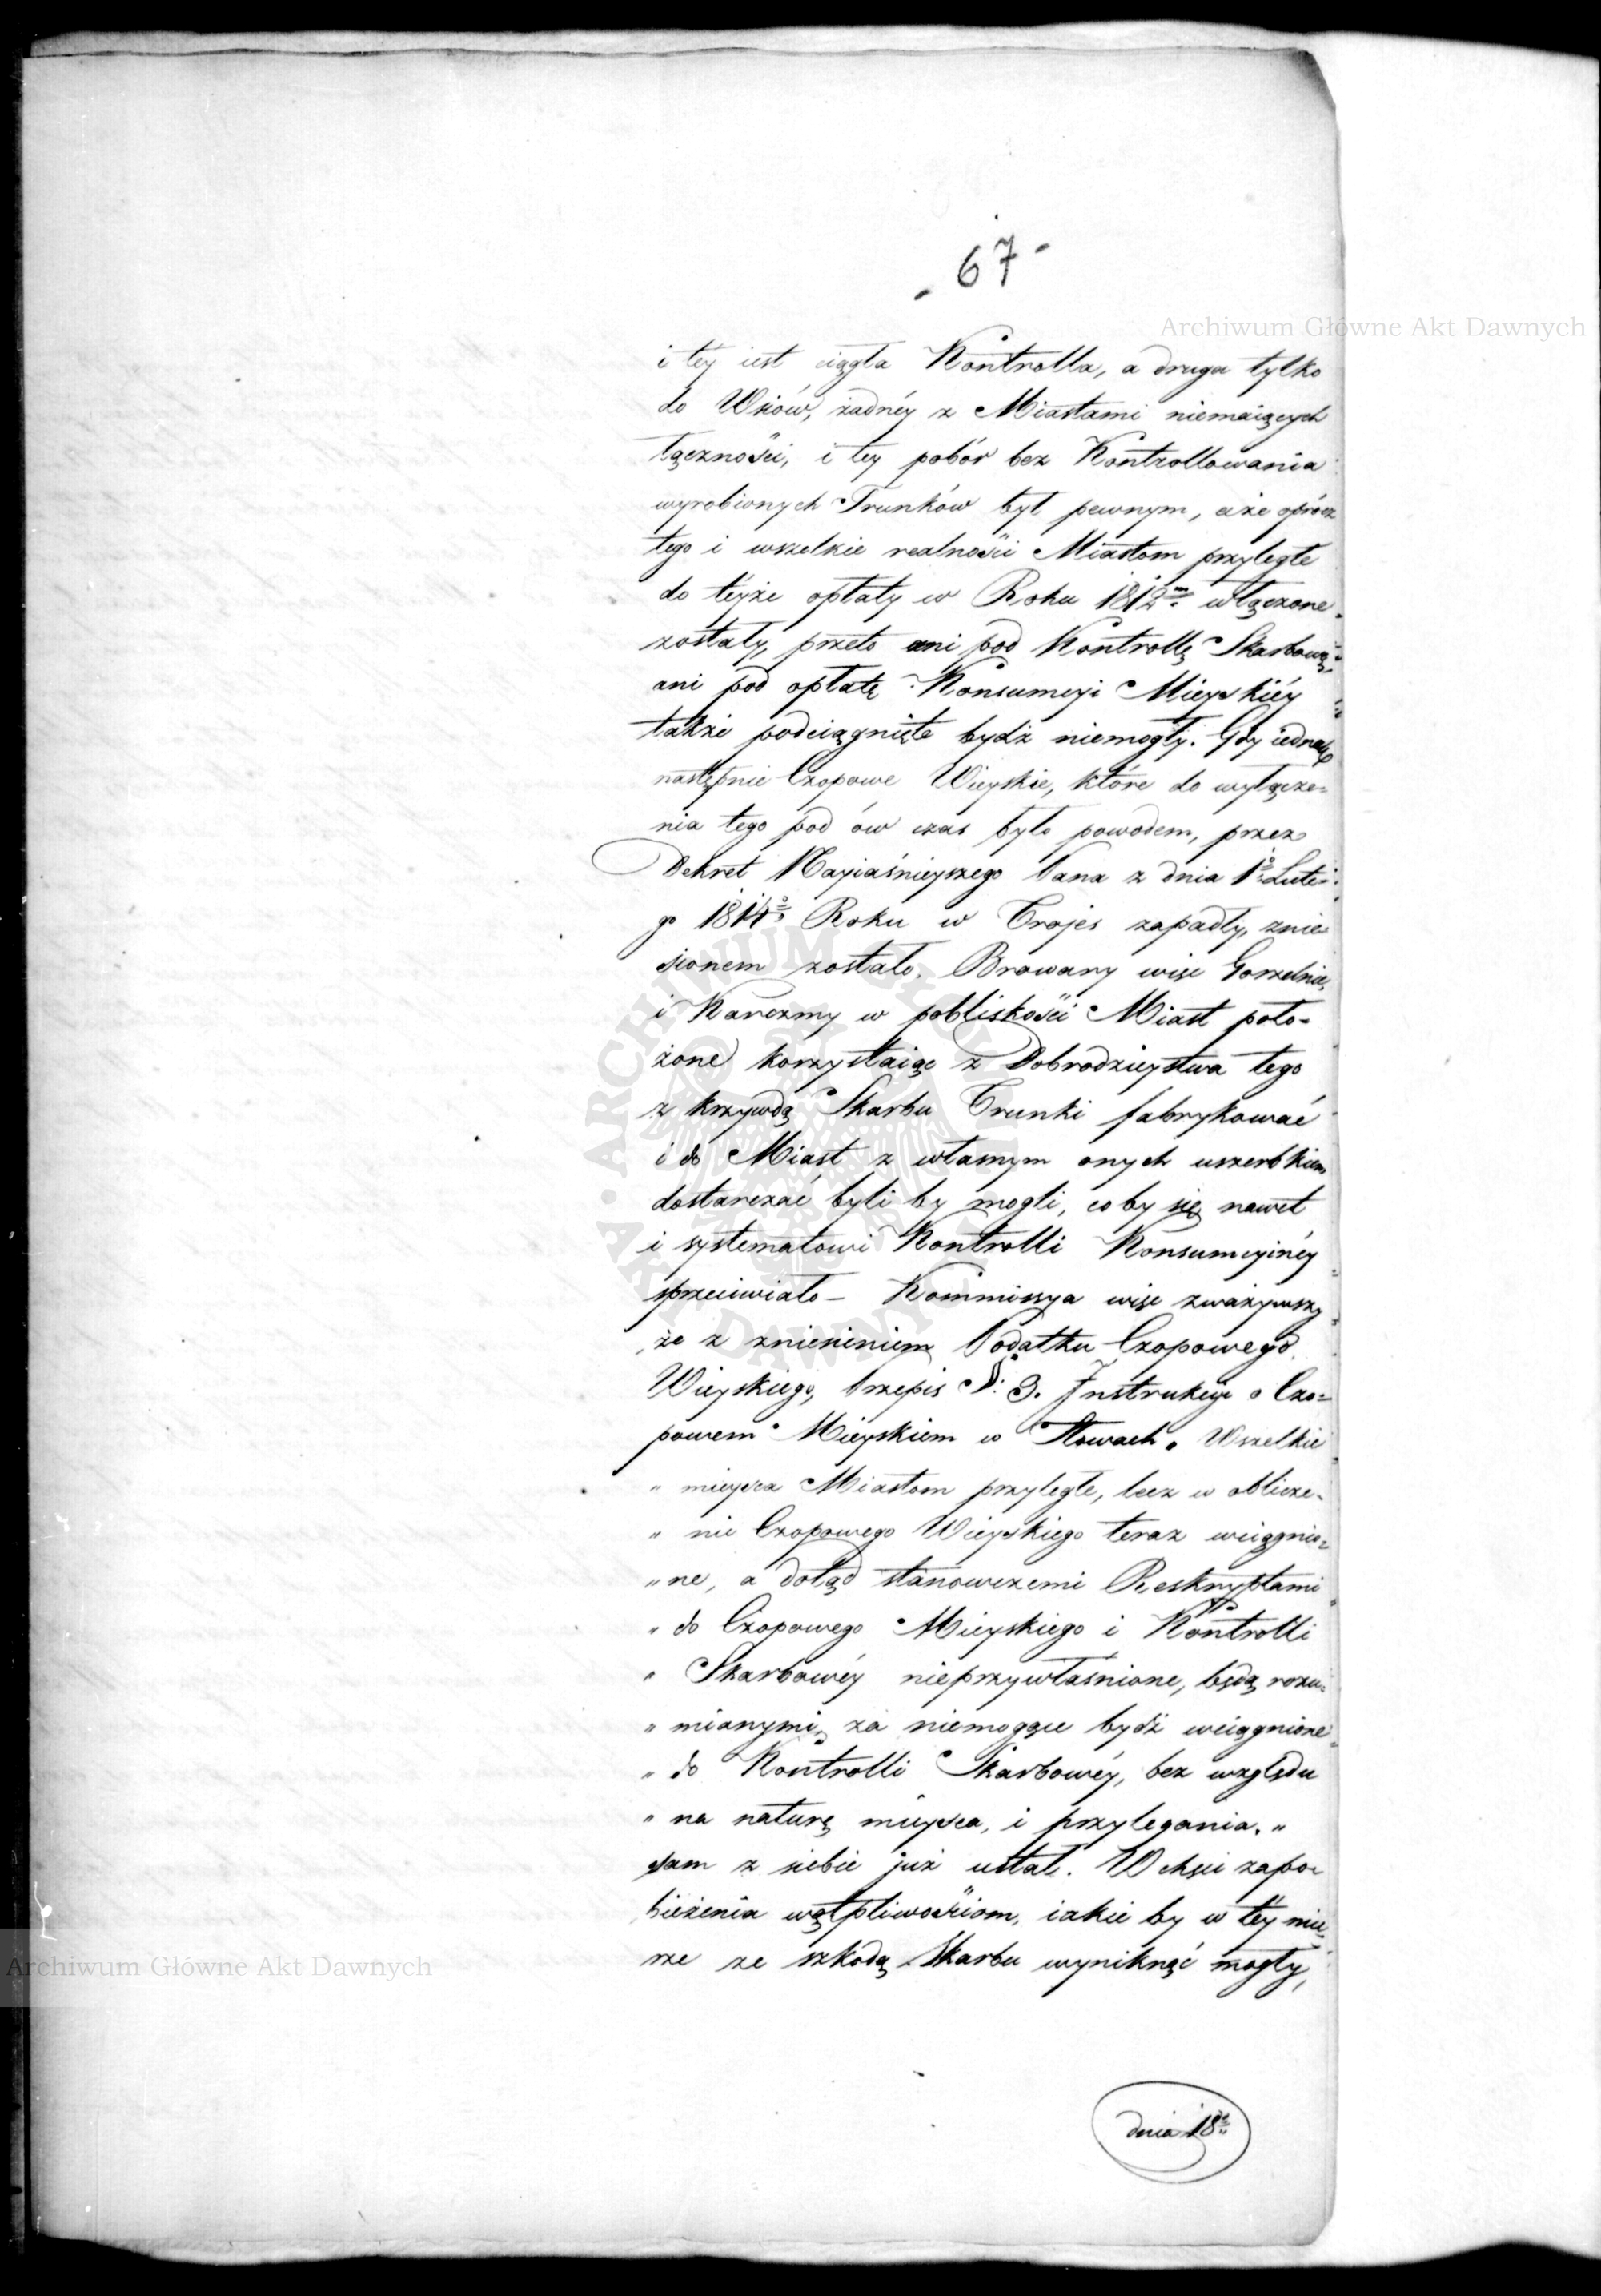 - 67 -
Archiwum Główne Akt Dawnych
i téy iest ciągła Kontrolla, a druga tylko
do Wsiów, żadnéy z Miastami niemaiących
łączności, i téy pobór bez Kontrollowania
wyrobionych Trunków był pewnym, a że oprócz
tego i wszelkie realności Miastom przyległe
do téyże opłaty w Roku 1812m włączone
zostały, przeto ani pod Kontrollę Skarbową
ani pod opłatę Konsumcyi Mieyskiéy
także podciągnięte bydź niemogły. Gdy iednak
następnie Czopowe Wieyskie, które do wyłącze=
nia tego pod ów czas było powodem, przez
Dekret Nayiaśnieyszego Pana z dnia 1o Lute=
go 1814o Roku w Trojes zapadły, znie=
sionem zostało. Browary więc Gorzelnie,
i Karczmy w pobliskości Miast poło=
żone korzystaiąc z Dobrodzieystwa tego
z krzywdą Skarbu Trunki fabrykować
i do Miast z własnym onych uszerbkiem
dostarczać byli by mogli, co by się nawet
i systematowi Kontrolli Konsumcyinéy
sprzeciwiało – Kommissya więc zważywszy
że z zniesieniem Podatku Czopowego
Wieyskiego, Przepis §: 3. Instrukcyi o Czo=
powem Mieyskiem w Słowach „ Wszelkie
„ mieysca Miastom przyległe, lecz w oblicze=
„ nie Czopowego Wieyskiego teraz wciągnio=
„ ne, a dotąd stanowczemi Reskryptami
„ do Czopowego Mieyskiego i Kontrolli
„ Skarbowéy nieprzywłaśnione, będą rozu=
„ mianymi, za niemogące bydź wciągnione
„ do Kontrolli Skarbowéy, bez względu
„ na naturę mieysca, i przylegania. „
sam z siebie już ustał. W chęci zapo=
bieżenia wątpliwościom, iakie by w téy mie=
rze ze szkodą Skarbu wyniknąć mogły,
Archiwum Główne Akt Dawnych
dnia 18o
ARCHIWUM GŁÓWNE AKT DAWNYCH